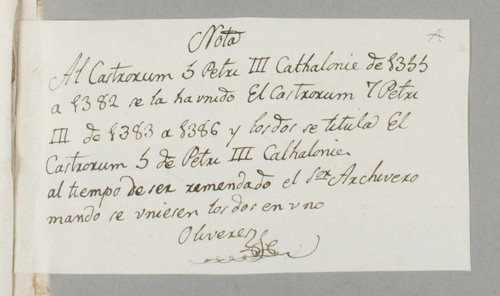 Nota
A
Al Castrorum 5 Petri III Cathalonie de 1355
a 1382 se la ha vnido El Castrorum 7 Petri
III de 1383 a 1386 y los dos se titula El
Castrorum 5 de Petri III Cathalonie
al tiempo de ser remendado el Sor Archivero
mando se vniesen los dos en vno
Oliveres